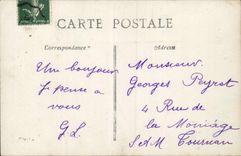 CARTE POSTALE
Correspondance
Adresse
Un bonjour
Je pense a
vous
GL
Monsieur
Georges Peyrot
4 Rue de
la
S&M Tournan